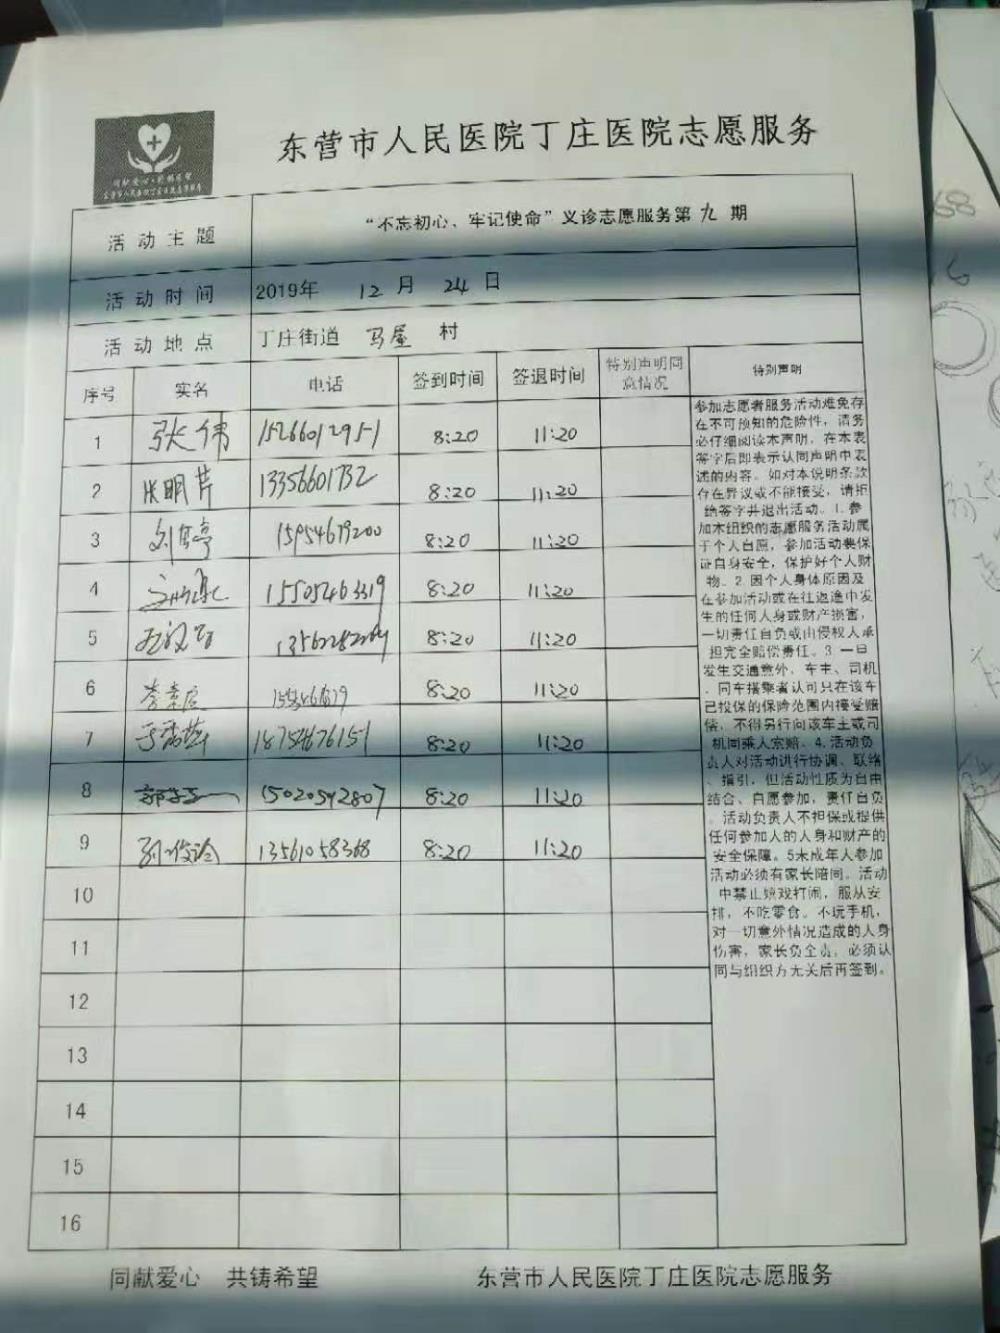 东营市人民医院丁庄医院志愿服务
活动主题 “不忘初心、牢记使命”义诊志愿服务第九期
活动时间 2019年 12月 24日
活动地点 丁庄街道 马屋 村
序号 实名 电话 签到时间 签退时间 特别声明同意情况 特别声明
1 张伟 15266012951 8:20 11:20
2 张明芹 13356601732 8:20 11:20
3 15954679200 8:20 11:20
4 15505463319 8:20 11:20
5 8:20 11:20
6 8:20 11:20
7 18754676151 8:20 11:20
8 15020592807 8:20 11:20
9 13561058368 8:20 11:20
10
11
12
13
14
15
16
参加志愿者服务活动难免存
在不可预知的危险性，请务
必仔细阅读本声明，在本表
签字后即表示认同声明中表
述的内容。如对本说明条款
存在异议或不能接受，请拒
绝签字并退出活动。1.参
加本组织的志愿服务活动属
于个人自愿，参加活动要保
证自身安全，保护好个人财
物。2.因个人身体原因及
在参加活动或在往返途中发
生的任何人身或财产损害，
一切责任自负或由侵权人承
担完全赔偿责任。3.一旦
发生交通意外，车主、司机
、同车搭乘者认可只在该车
已投保的保险范围内接受赔
偿，不得另行向该车主或司
机同乘人索赔。4.活动负
责人对活动进行协调、联络
、指引，但活动性质为自由
结合、自愿参加，责任自负
。活动负责人不担保或提供
任何参加人的人身和财产的
安全保障。5未成年人参加
活动必须有家长陪同。活动
中禁止嬉戏打闹，服从安
排，不吃零食。不玩手机，
对一切意外情况造成的人身
伤害，家长负全责，必须认
同与组织方无关后再签到。
同献爱心 共铸希望 东营市人民医院丁庄医院志愿服务